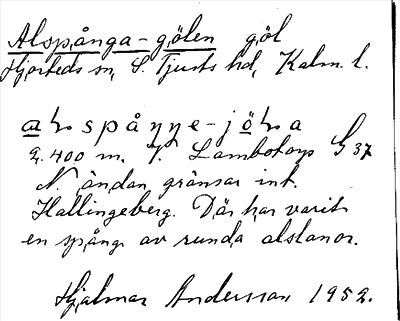 Alspånga-gölen göl
Hjorteds sn, S. Tjusts hd, Kalm. l.
spåŋŋe-
c. 400 m. V. Lambotorp G 37
N. ändan gränsar int.
Hallingeberg. Där har varit
en spång av runda alstanor.
Hjalmar Andersson 1952.